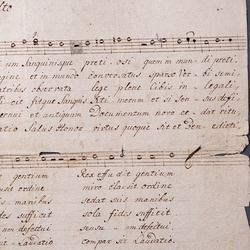 lto
um Sanguinisque preti osi quem in mun di preti
gine et in mundo conversatus sparso Ver bi semi
atribus observata lege plene Cibis in legali
fi cit fitque Sangvis Xti merum et si Sen sus defi
ernui et antiquum documentum novo ce dat ritu
atio Salus Honor virtus quoque Sit et bene dicti
gentium Rex effu dit gentium
sit ordine miro clausit ordine
dedit sat suis manibus
des sufficit sola fides sufficit
um defectui sensu um defectui
que Laudatio compar sit Laudatio